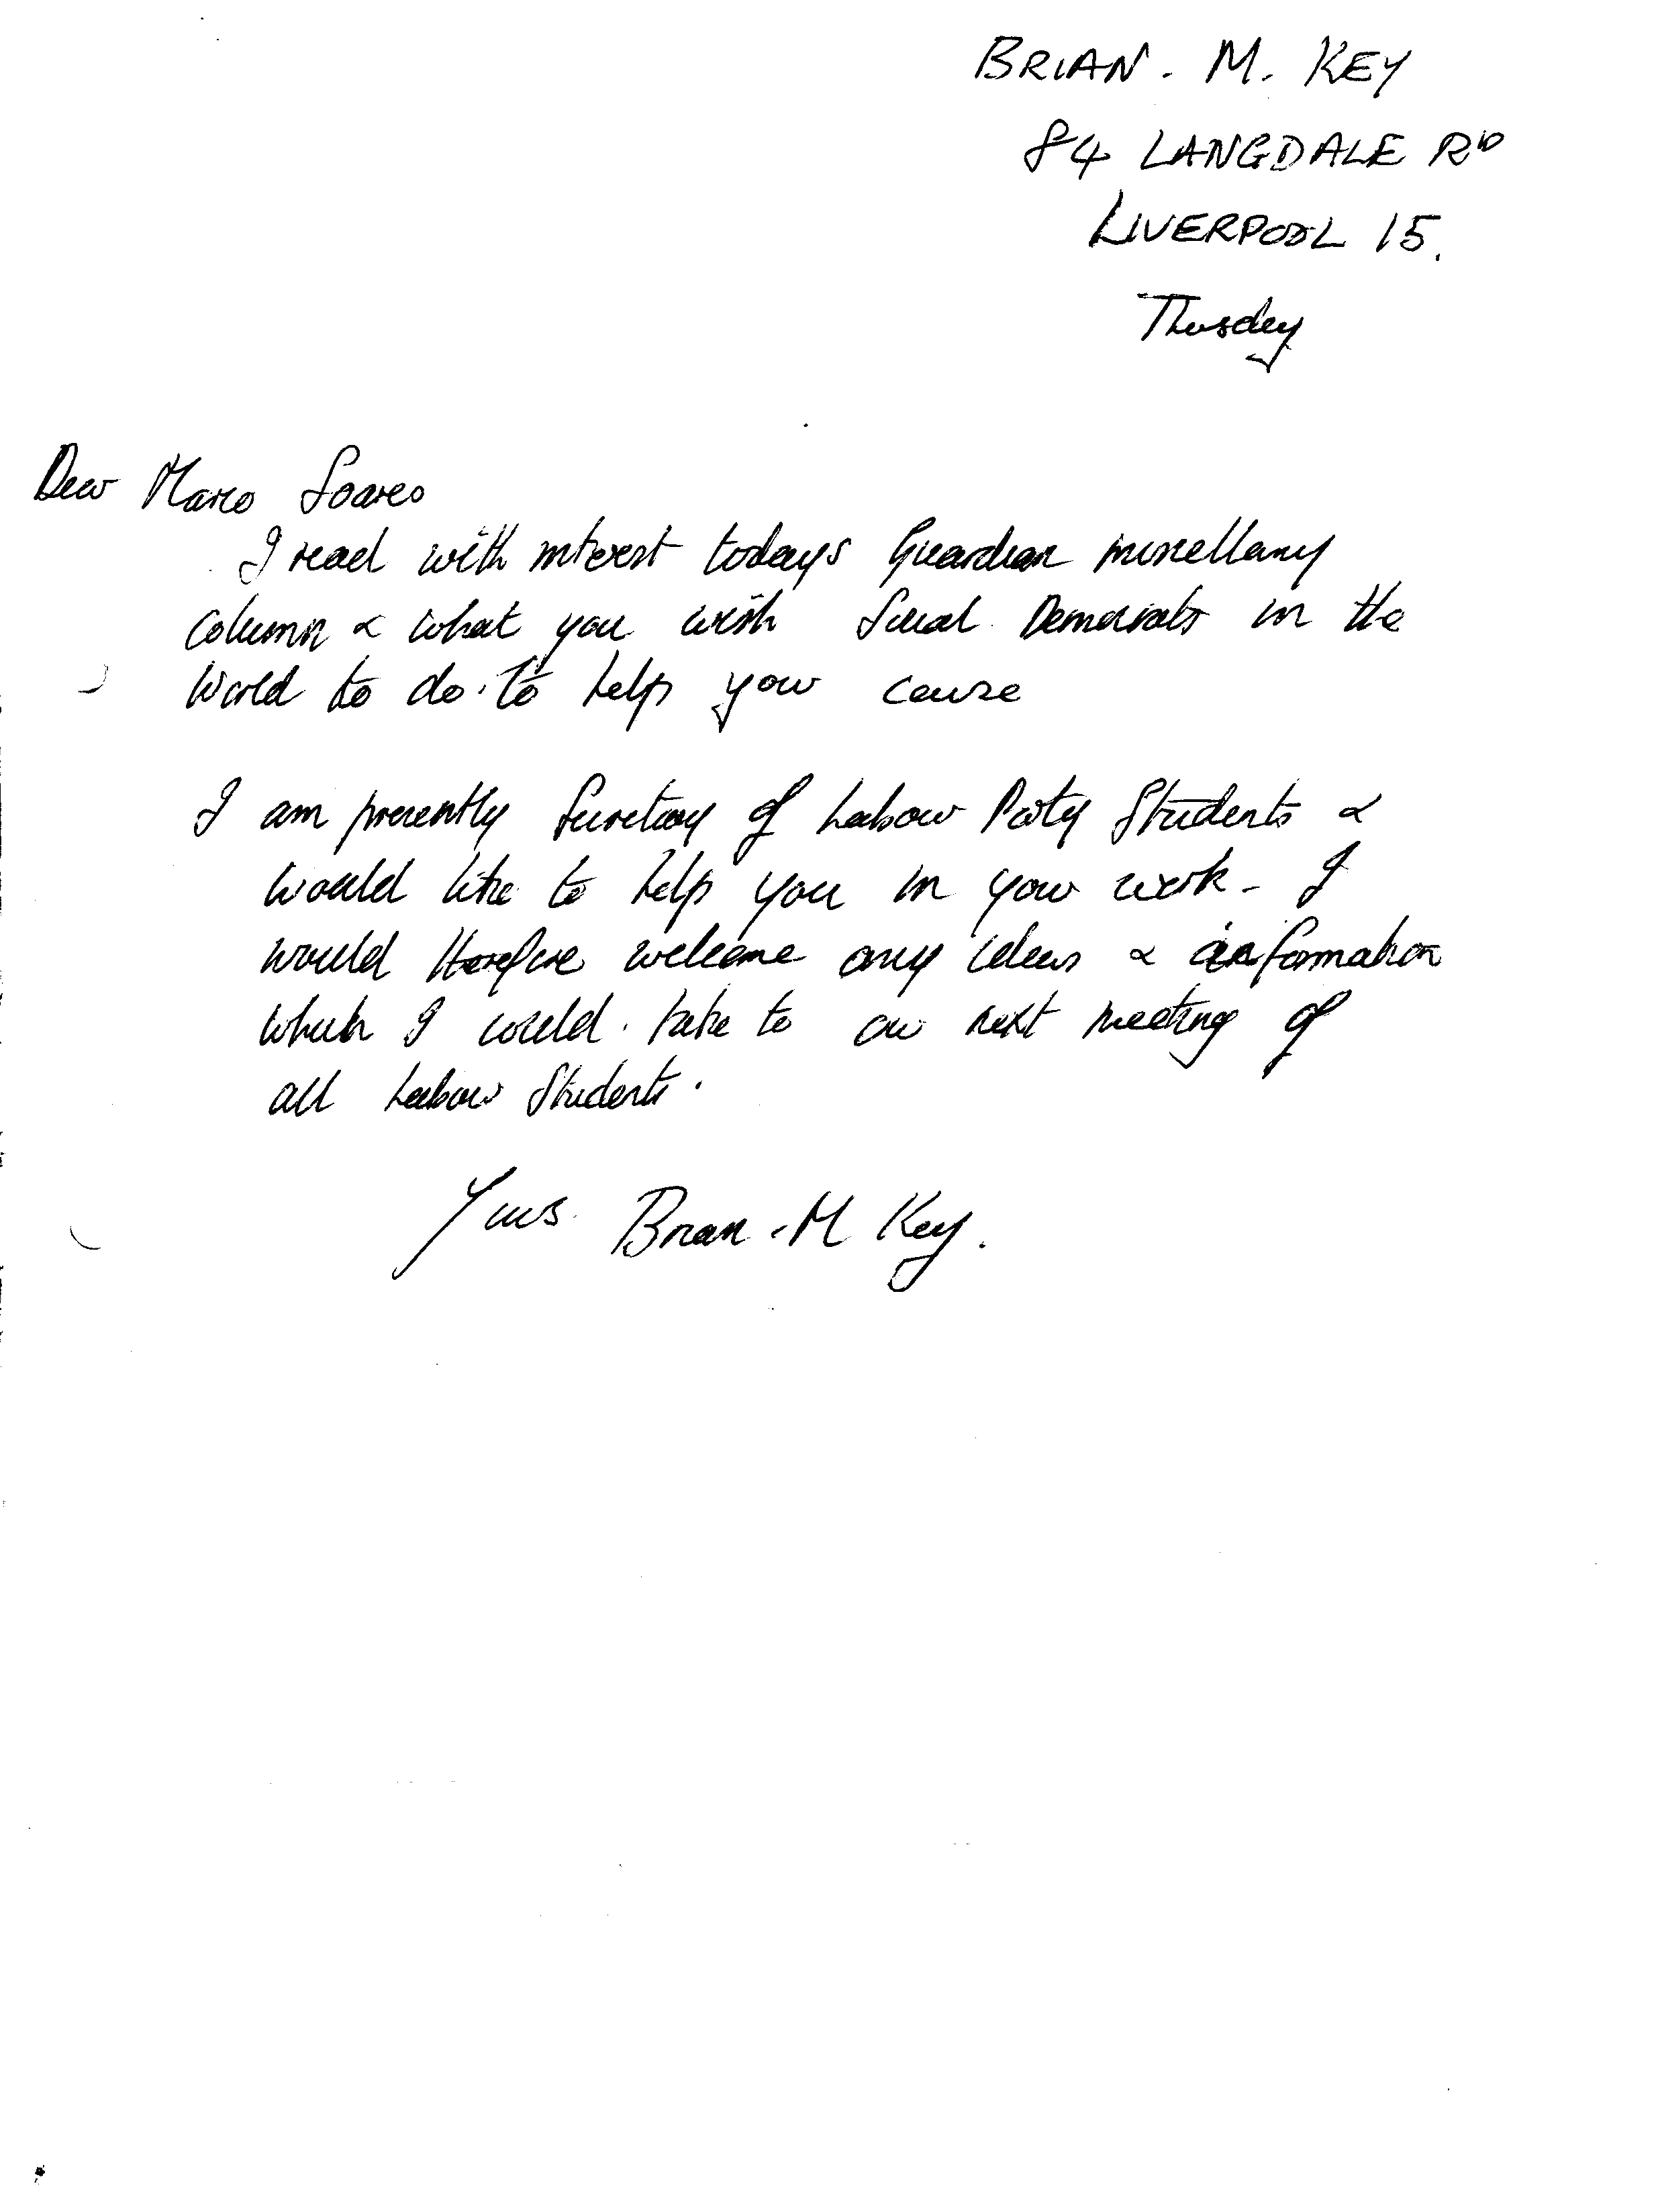 BRIAN. M. KEY
84 LANGDALE RD
LIVERPOOL 15.
Thursday
Dear Mario Soares
I read with interest todays Guardian miscellany
column & what you wish Social Democrats in the
World to do to help your cause
I am presently Secretary of Labour Party Students &
would like to help you in your work - I
would therefore welcome any ideas & information
which I could take to our next meeting of
all Labour Students.
Yours Brian M Key.